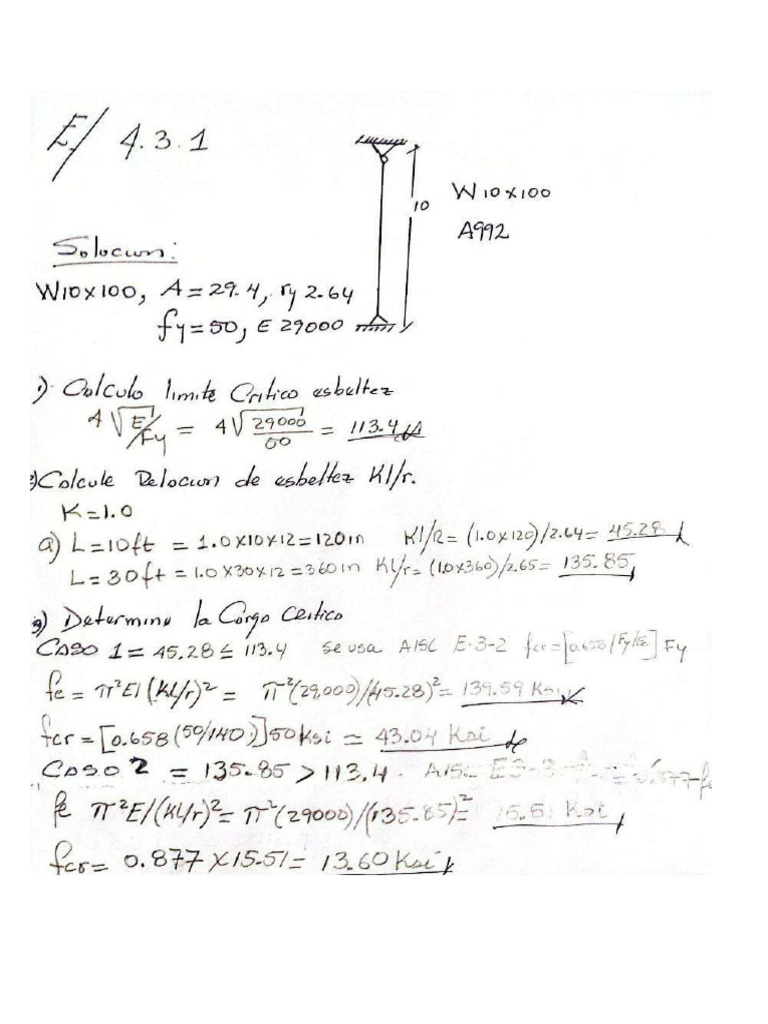 E/ 4.3.1
10
W10x100
A992
Solocion:
W10x100, A=29.4, ry 2.64
fy=50, E 29000
1) Calculo limite Critico esbeltez
4√E/Fy = 4√29000/50 = 113.4
2) Calcule Relocion de esbeltez Kl/r.
K=1.0
a) L=10ft = 1.0x10x12=120in Kl/R=(1.0x120)/2.64= 45.28
L=30ft=1.0x30x12=360in Kl/r=(1.0x360)/2.65= 135.85
3) Determine la Carga Critico
CASO 1= 45.28 ≤ 113.4 se usa AISC E-3-2 fcr=[0.658(Fy/Fe)] Fy
fe = π²E/(Kl/r)² = π²(29,000)/(45.28)²= 139.59 Ksi
fcr=[0.658(50/140)]50Ksi = 43.04 Ksi
CASO 2 = 135.85 > 113.4. AISC E3-3
fe π²E/(Kl/r)²= π²(29000)/(135.85)²= 15.51 Ksi
fcr= 0.877x15.51= 13.60 Ksi